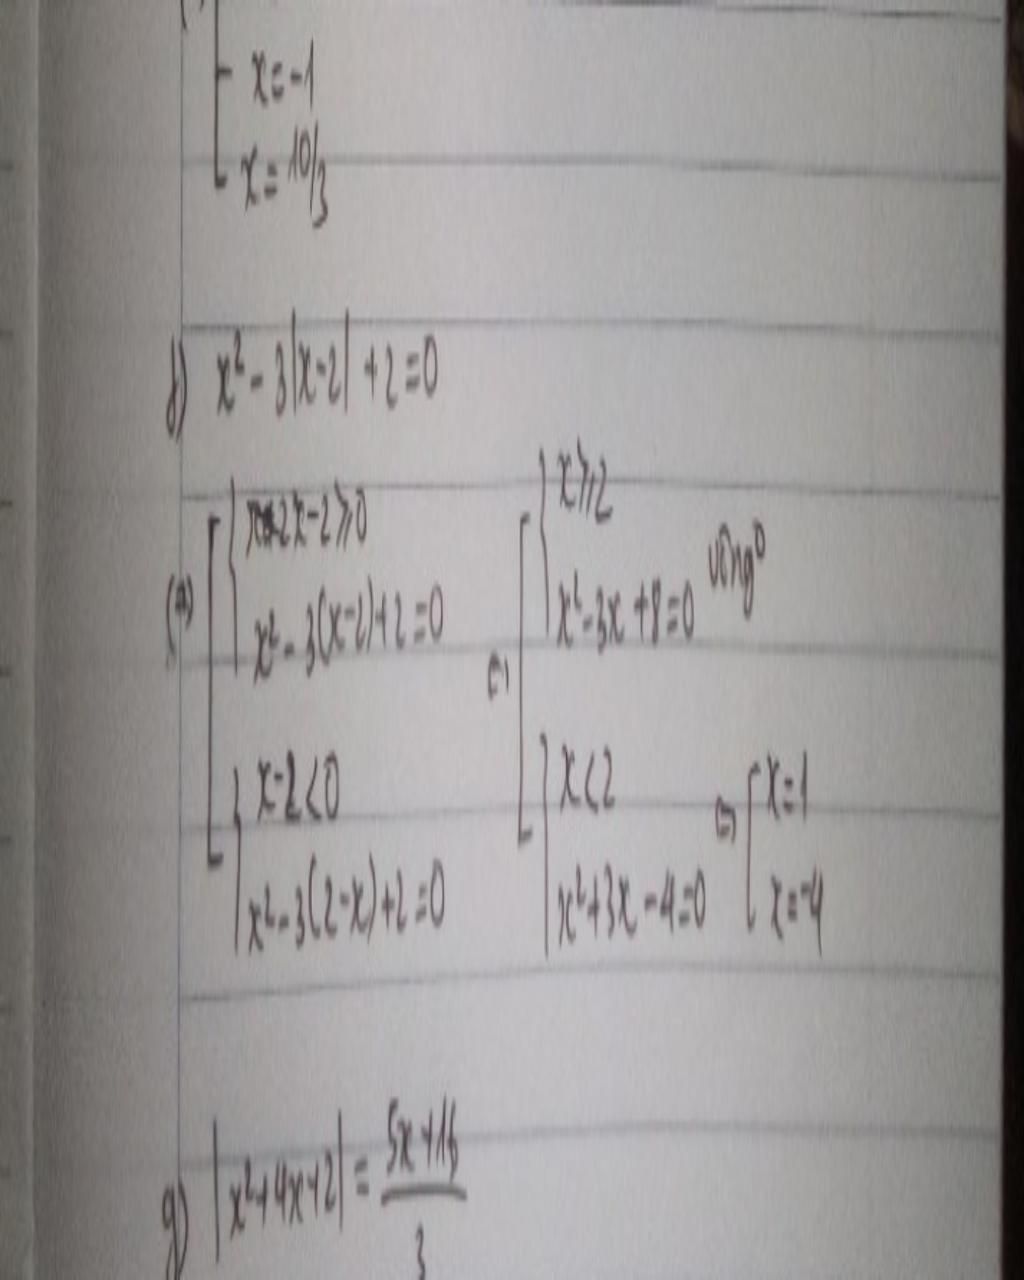 x = -1
x = 10/3
f) x² - 3|x-2| + 2 = 0
(*) x - 2 ≥ 0
x² - 3(x-2) + 2 = 0
x - 2 < 0
x² - 3(2-x) + 2 = 0
⇔ x ≥ 2
x² - 3x + 8 = 0 vô ng⁰
x < 2
x² + 3x - 4 = 0 ⇔ x = 1
x = -4
g) |x² + 4x + 2| = 5x + 16
3